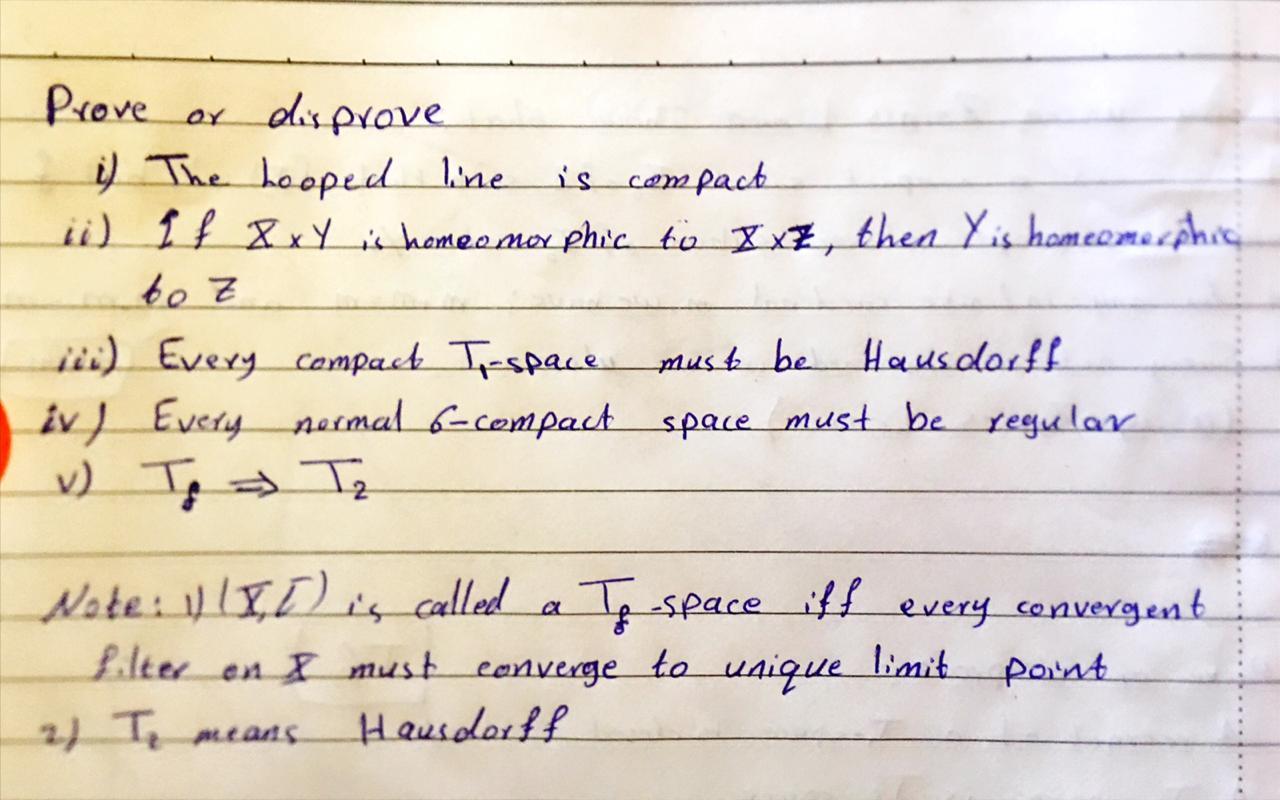 Prove or disprove
i) The looped line is compact
ii) If X x Y is homeomorphic to X x Z, then Y is homeomorphic
to Z
iii) Every compact T₁-space must be Hausdorff
iv) Every normal σ-compact space must be regular
v) T_f ⇒ T₂
Note: 1) (X, τ) is called a T_f -space iff every convergent
filter on X must converge to unique limit point
2) T₂ means Hausdorff